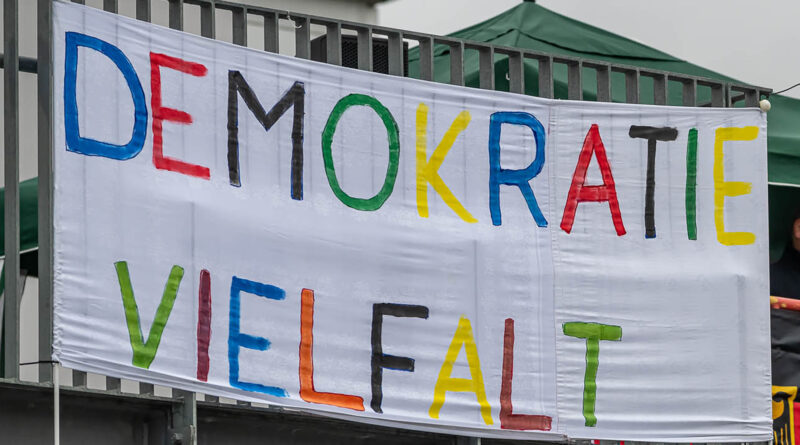 DEMOKRATIE
VIELFALT